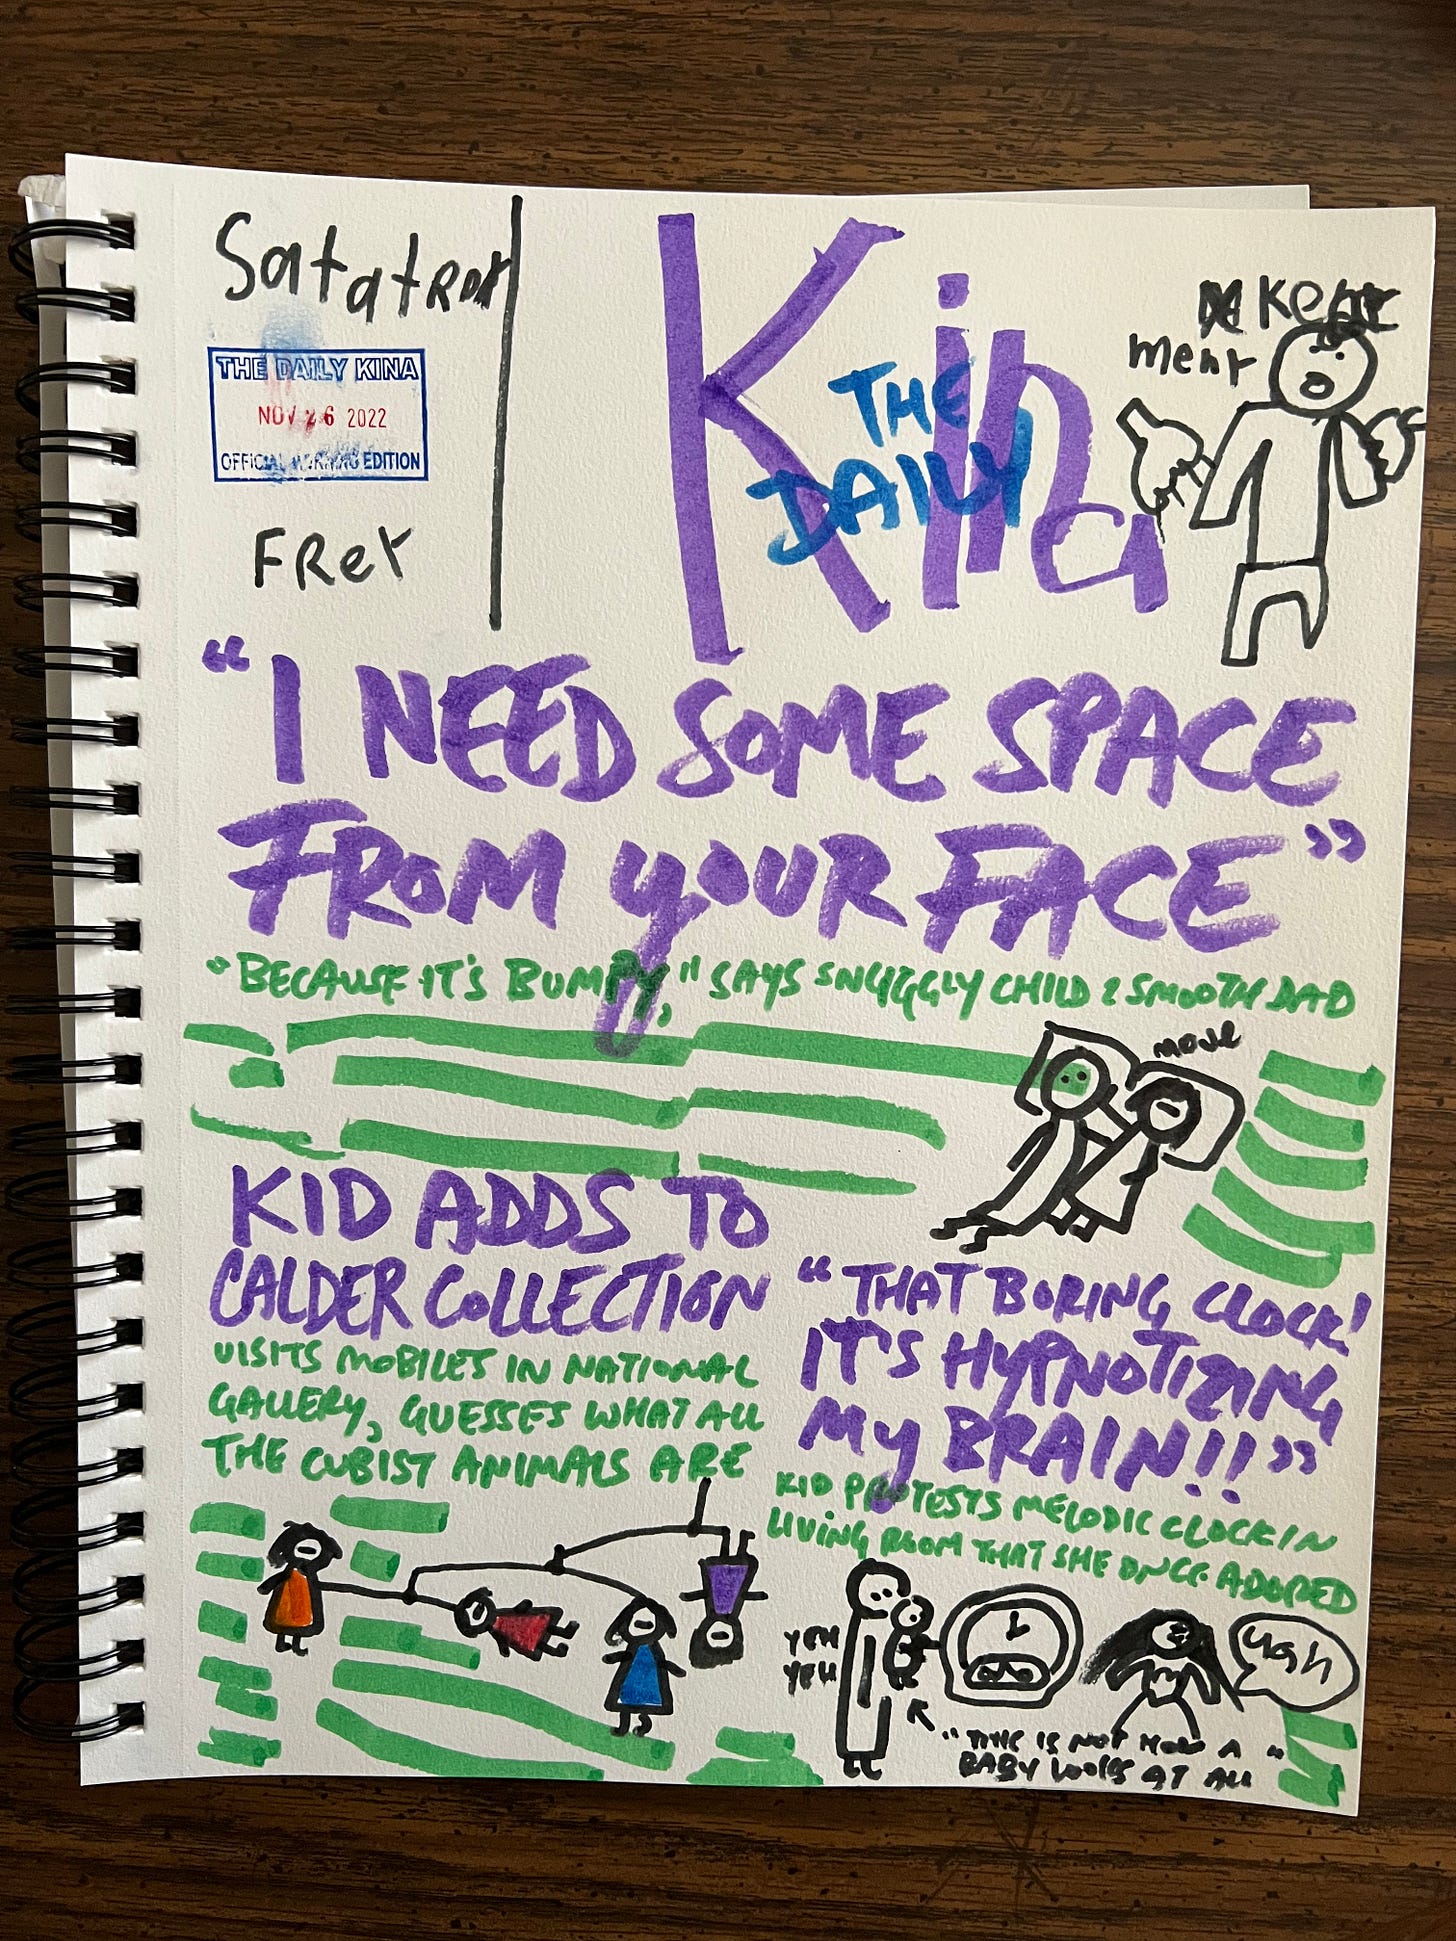 Satatrdy
THE DAILY KINA
NOV 26 2022
OFFICIAL MORNING EDITION
FRey
Kina
THE
DAILY
menr
"I NEED SOME SPACE
FROM YOUR FACE"
"BECAUSE IT'S BUMPY," SAYS SNUGGLY CHILD 2 SMOOTH DAD
MOVE
KID ADDS TO
CALDER COLLECTION
VISITS MOBILES IN NATIONAL
GALLERY, GUESSES WHAT ALL
THE CUBIST ANIMALS ARE
"THAT BORING CLOCK!
IT'S HYPNOTIZING
MY BRAIN!!"
KID PROTESTS MELODIC CLOCK IN
LIVING ROOM THAT SHE ONCE ADORED
YEH
YEH
ugh
"THIS IS NOT HOW A"
BABY LOOKS AT ALL